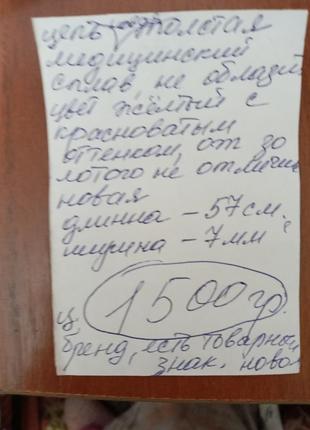 цепь толстая
медицинский
сплав, не облазит
цвет жёлтый с
красноватым
оттенком, от зо
лотого не отличиш
новая
длинна - 57 см.
ширина - 7 мм
ц. 1500 гр.
бренд, есть товарный
знак. новая